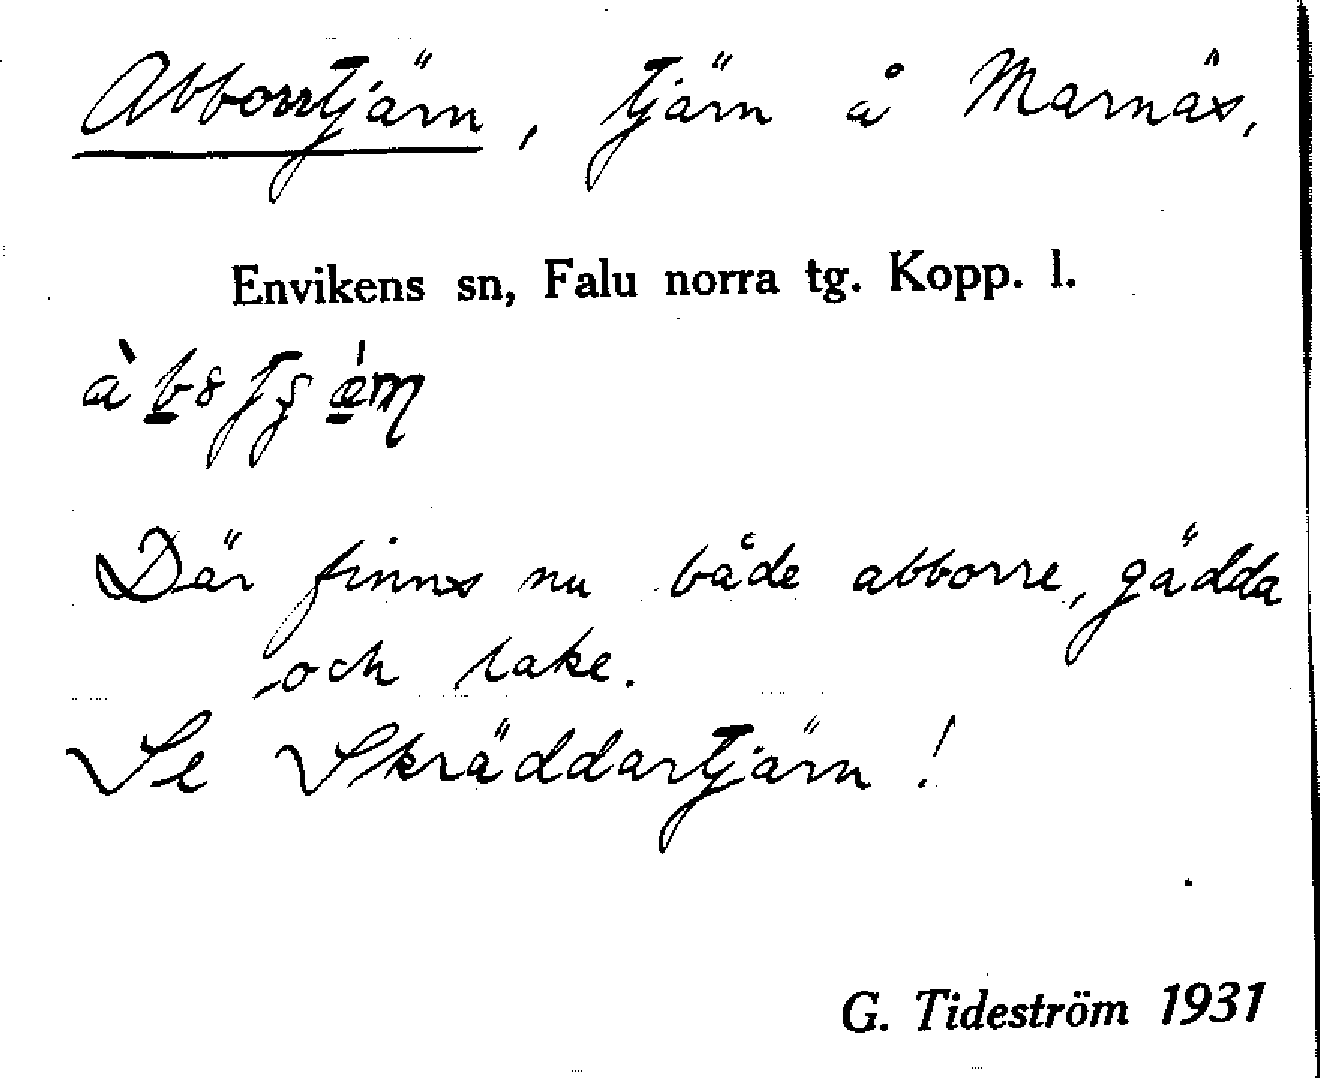 Abborrtjärn, tjärn å Marnäs,
Envikens sn, Falu norra tg. Kopp. l.
Där finns nu både abborre, gädda
och lake.
Se Skräddartjärn!
G. Tideström 1931